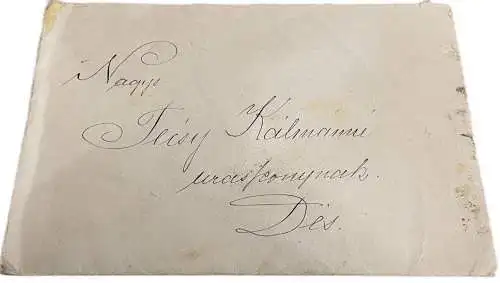 Nagys
Técsy Kálmánné
urasszonynak.
Dés.